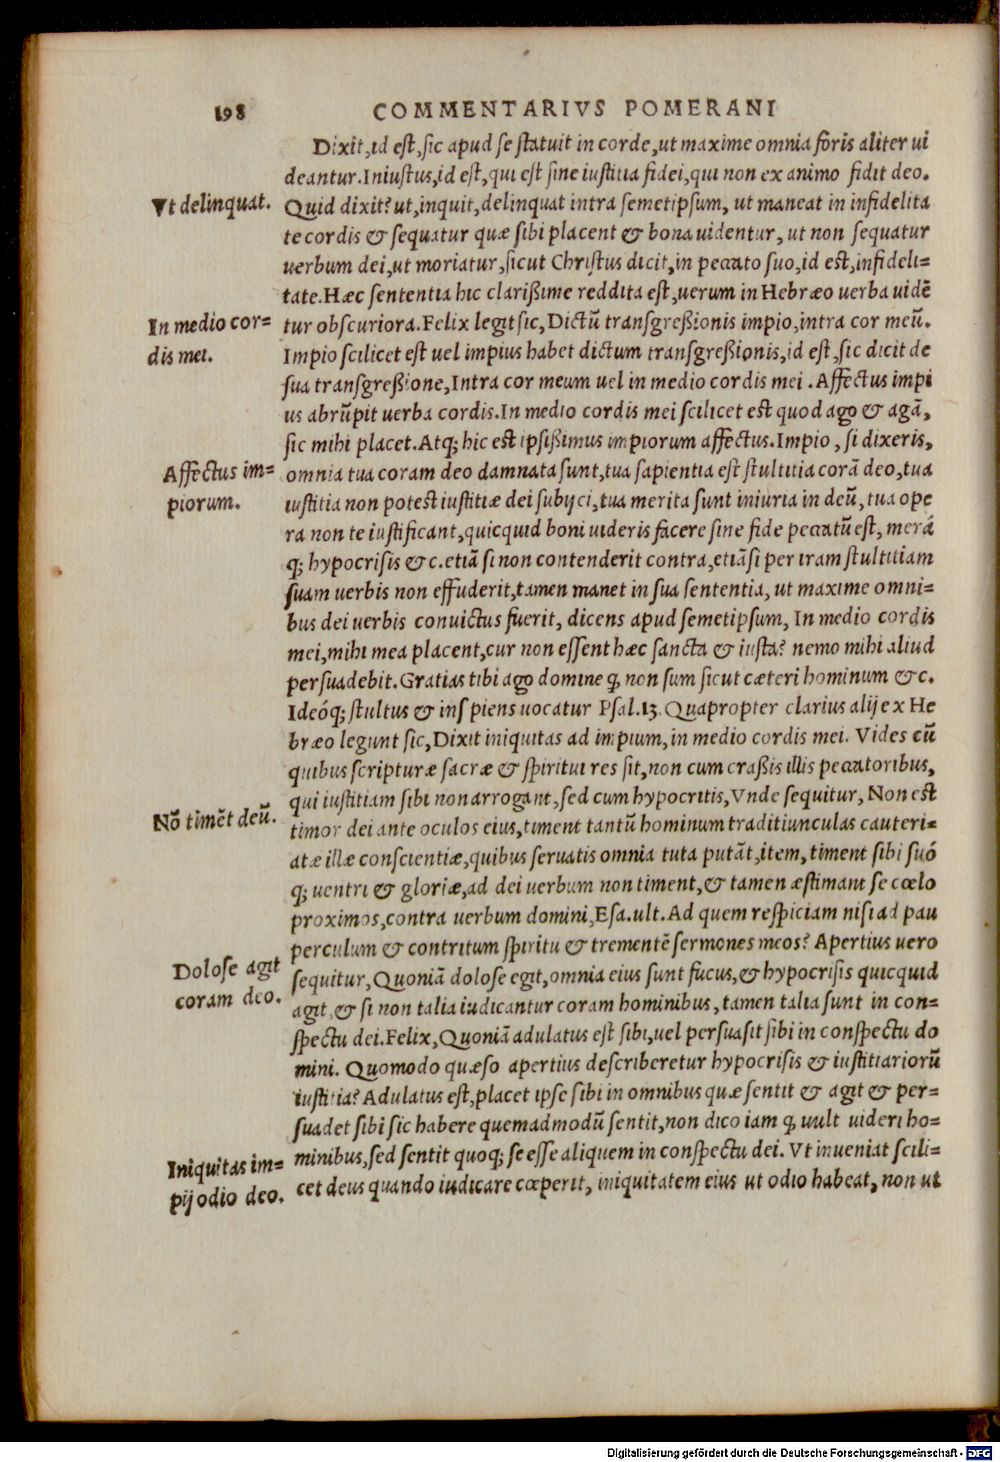 198 COMMENTARIVS POMERANI
Dixit, id est, sic apud se statuit in corde, ut maxime omnia foris aliter ui
deantur. Iniustus, id est, qui est sine iustitia fidei, qui non ex animo fidit deo.
Vt delinquat.
Quid dixit? ut, inquit, delinquat intra semetipsum, ut maneat in infidelita
te cordis & sequatur quæ sibi placent & bona uidentur, ut non sequatur
uerbum dei, ut moriatur, sicut Christus dicit, in peccato suo, id est, infideli=
tate. Hæc sententia hic clarißime reddita est, uerum in Hebræo uerba uidē
In medio cor=
dis mei.
tur obscuriora. Felix legit sic, Dictū transgreßionis impio, intra cor meū.
Impio scilicet est uel impius habet dictum transgreßionis, id est, sic dicit de
sua transgreßione, Intra cor meum uel in medio cordis mei. Affectus impi
us abrūpit uerba cordis. In medio cordis mei scilicet est quod ago & agā,
sic mihi placet. Atq; hic est ipsißimus impiorum affectus. Impio, si dixeris,
Affectus im=
piorum.
omnia tua coram deo damnata sunt, tua sapientia est stultitia corā deo, tua
iustitia non potest iustitiæ dei subijci, tua merita sunt iniuria in deū, tua ope
ra non te iustificant, quicquid boni uideris facere sine fide peccatū est, merá
q; hypocrisis &c. etiā si non contenderit contra, etiāsi per iram stultitiam
suam uerbis non effuderit, tamen manet in sua sententia, ut maxime omni=
bus dei uerbis conuictus fuerit, dicens apud semetipsum, In medio cordis
mei, mihi mea placent, cur non essent hæc sancta & iusta? nemo mihi aliud
persuadebit. Gratias tibi ago domine q̧ non sum sicut cæteri hominum &c.
Ideóq; stultus & insipiens uocatur Psal. 13. Quapropter clarius alij ex He
bræo legunt sic, Dixit iniquitas ad impium, in medio cordis mei. Vides cū
quibus scripturæ sacræ & spiritui res sit, non cum craßis illis peccatoribus,
qui iustitiam sibi non arrogant, sed cum hypocritis, Vnde sequitur, Non est
Nō timēt deū.
timor dei ante oculos eius, timent tantū hominum traditiunculas cauteri=
atæ illæ conscientiæ, quibus seruatis omnia tuta putāt, item, timent sibi suó
q; uentri & gloriæ, ad dei uerbum non timent, & tamen æstimant se cœlo
proximos, contra uerbum domini, Esa. ult. Ad quem respiciam nisi ad pau
perculum & contritum spiritu & trementē sermones meos? Apertius uero
Dolose agit
coram deo.
sequitur, Quoniā dolose egit, omnia eius sunt fucus, & hypocrisis quicquid
agit, & si non talia iudicantur coram hominibus, tamen talia sunt in con=
spectu dei. Felix, Quoniā adulatus est sibi, uel persuasit sibi in conspectu do
mini. Quomodo quæso apertius describeretur hypocrisis & iustitiariorū
iustitia? Adulatus est, placet ipse sibi in omnibus quæ sentit & agit & per=
suadet sibi sic habere quemadmodū sentit, non dico iam q̧ uult uideri ho=
minibus, sed sentit quoq; se esse aliquem in conspectu dei. Vt inueniat scili=
Iniquitas im=
pij odio deo.
cet deus quando iudicare cœperit, iniquitatem eius ut odio habeat, non ut
Digitalisierung gefördert durch die Deutsche Forschungsgemeinschaft - DFG